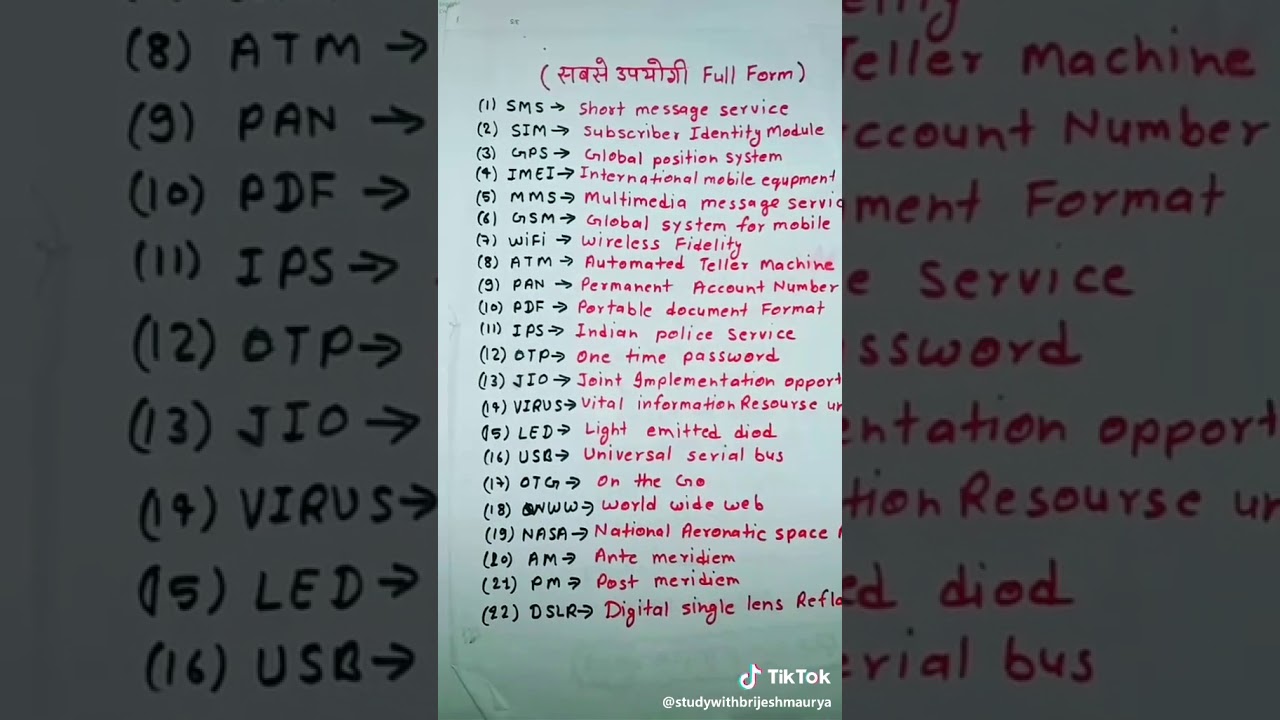 (सबसे उपयोगी Full Form)
(1) SMS → Short message service
(2) SIM → Subscriber Identity Module
(3) GPS → Global position system
(4) IMEI → International mobile equpment
(5) MMS → Multimedia message servic
(6) GSM → Global system for mobile
(7) WiFi → Wireless Fidelity
(8) ATM → Automated Teller Machine
(9) PAN → Permanent Account Number
(10) PDF → Portable document Format
(11) IPS → Indian police Service
(12) OTP → One time password
(13) JIO → Joint Implementation opport
(14) VIRUS → Vital information Resourse un
(15) LED → Light emitted diod
(16) USB → Universal serial bus
(17) OTG → On the Go
(18) WWW → World wide web
(19) NASA → National Aeronatic space
(20) AM → Ante meridiem
(21) PM → Post meridiem
(22) DSLR → Digital single lens Refl
TikTok
@studywithbrijeshmaurya
(8) ATM →
(9) PAN →
(10) PDF →
(11) IPS →
(12) OTP →
(13) JIO →
(14) VIRUS →
(15) LED →
(16) USB →
Teller Machine
ccount Number
ment Format
e Service
ssword
entation opport
tion Resourse un
ed diod
erial bus